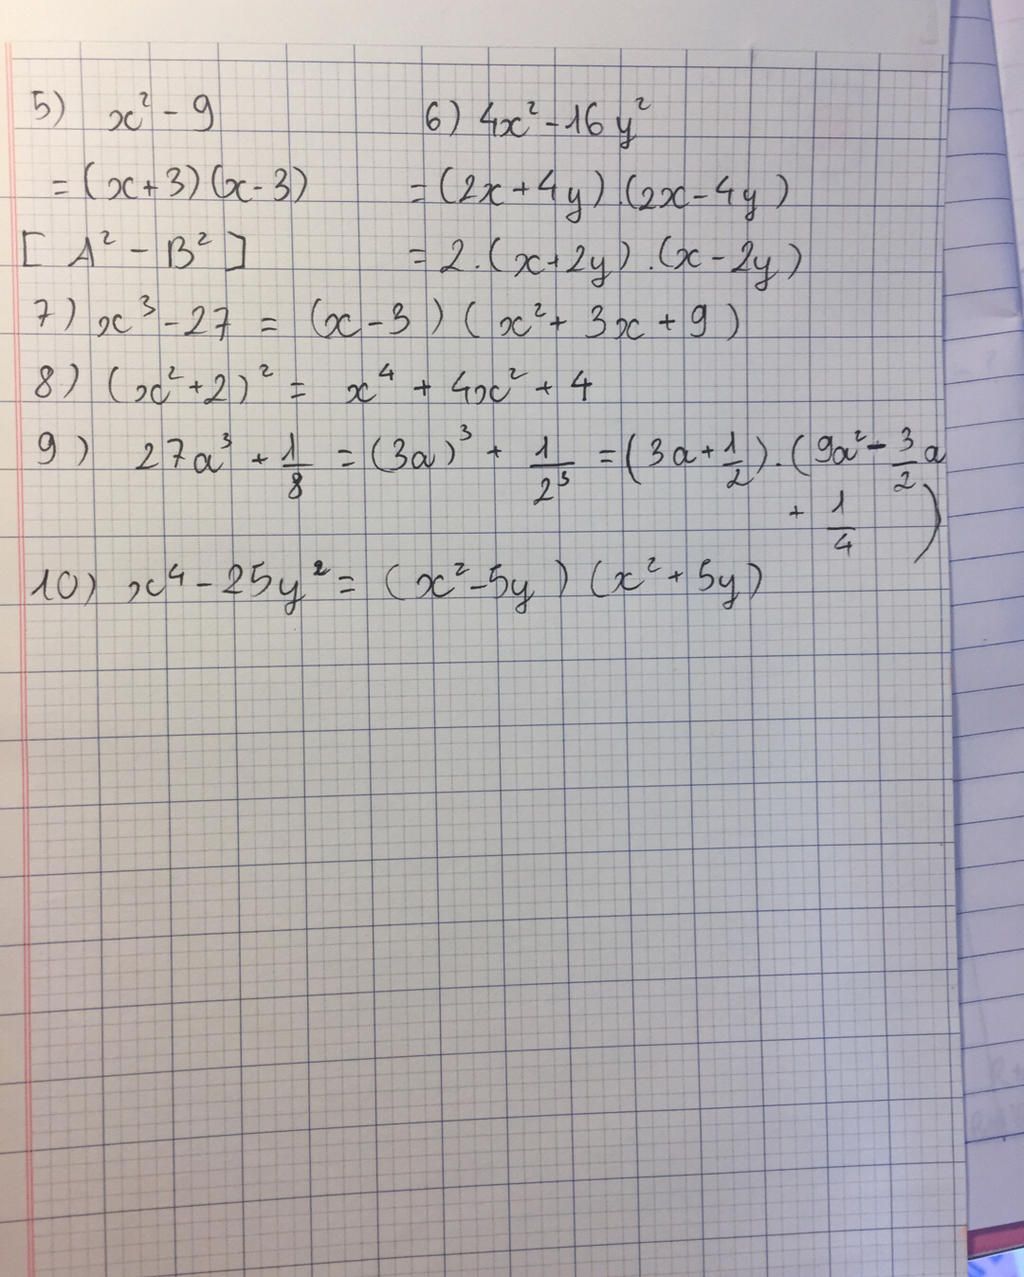 5) x² - 9
= (x+3)(x-3)
[ A² - B² ]
6) 4x² - 16y²
= (2x+4y).(2x-4y)
= 2.(x+2y).(x-2y)
7) x³ - 27 = (x-3)(x² + 3x + 9)
8) (x²+2)² = x⁴ + 4x² + 4
9) 27a³ + 1/8 = (3a)³ + 1/2³ = (3a + 1/2).(9a² - 3/2 a
+ 1/4)
10) x⁴ - 25y² = (x² - 5y)(x² + 5y)